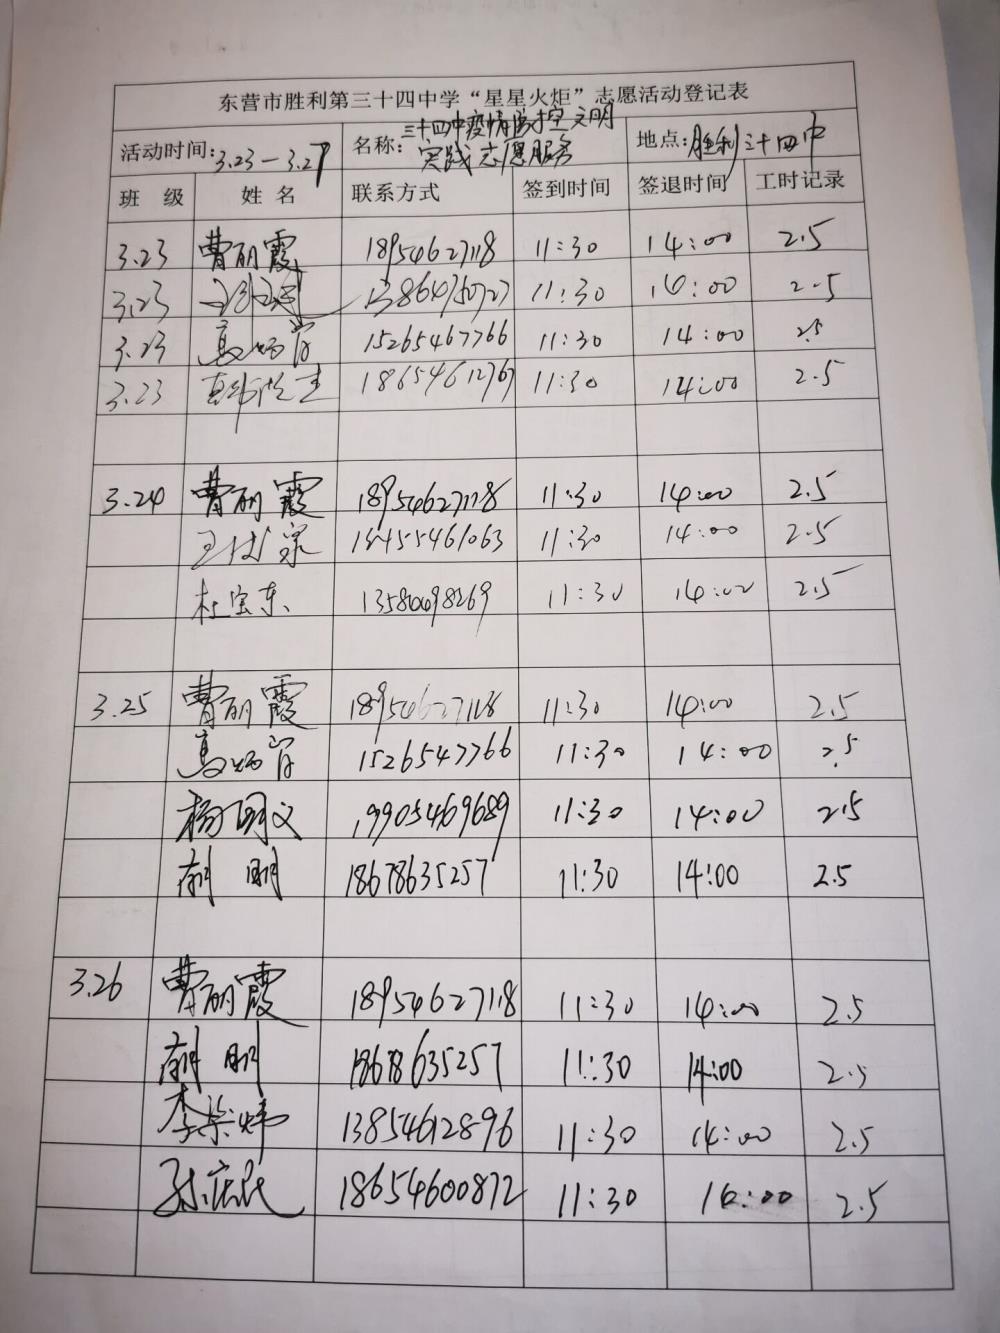 东营市胜利第三十四中学“星星火炬”志愿活动登记表
活动时间:3.23-3.27 名称:三十四中疫情防控文明实践志愿服务 地点:胜利三十四中
班 级 姓 名 联系方式 签到时间 签退时间 工时记录
3.23 曹丽霞 18954627118 11:30 14:00 2.5
3.23 11:30 14:00 2.5
3.23 15265467766 11:30 14:00 2.5
3.23 18654612767 11:30 14:00 2.5
3.24 曹丽霞 18954627118 11:30 14:00 2.5
11:30 14:00 2.5
杜宝东 11:30 14:00 2.5
3.25 曹丽霞 18954627118 11:30 14:00 2.5
11:30 14:00 2.5
杨明义 19905469689 11:30 14:00 2.5
18678635257 11:30 14:00 2.5
3.26 曹丽霞 18954627118 11:30 14:00 2.5
18678635257 11:30 14:00 2.5
13854612896 11:30 14:00 2.5
18654600872 11:30 14:00 2.5